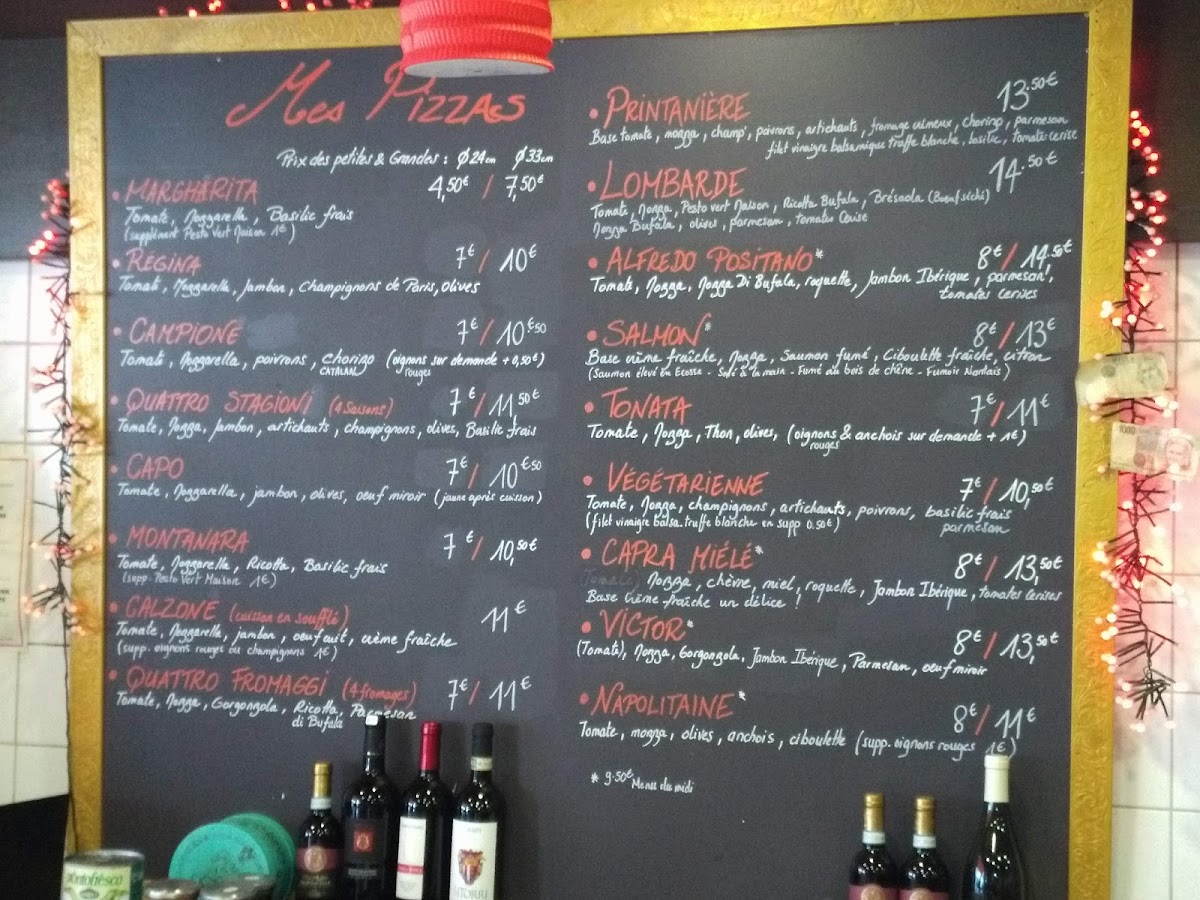 Mes Pizzas
Prix des petites & Grandes : Ø24cm Ø33cm
• MARGHARITA 4,50€ / 7,50€
Tomate, Mozzarella, Basilic frais
(supplément Pesto Vert Maison 1€)
• REGINA 7€ / 10€
Tomate, Mozzarella, jambon, champignons de Paris, olives
• CAMPIONE 7€ / 10€50
Tomate, Mozzarella, poivrons, chorizo (oignons sur demande + 0,50€)
CATALAN rouges
• QUATTRO STAGIONI (4 Saisons) 7€ / 11,50€
Tomate, Mozza, jambon, artichauts, champignons, olives, Basilic frais
• CAPO 7€ / 10€50
Tomate, Mozzarella, jambon, olives, oeuf miroir (jaune après cuisson)
• MONTANARA 7€ / 10,50€
Tomate, Mozzarella, Ricotta, Basilic frais
(supp. Pesto Vert Maison 1€)
• CALZONE (cuisson en soufflé) 11€
Tomate, Mozzarella, jambon, oeuf cuit, crème fraîche
(supp. oignons rouges ou champignons 1€)
• QUATTRO FROMAGGI (4 fromages) 7€ / 11€
Tomate, Mozza, Gorgonzola, Ricotta, Parmesan
di Bufala
• PRINTANIÈRE 13.50€
Base tomate, mozza, champ', poivrons, artichauts, fromage crémeux, chorizo, parmesan
filet vinaigre balsamique truffe blanche, basilic, tomates cerise
• LOMBARDE 14.50€
Tomate, Mozza, Pesto vert Maison, Ricotta Bufala, Brésaola (Boeuf séché)
Mozza Bufala, olives, parmesan, tomates cerise
• ALFREDO POSITANO* 8€ / 14.50€
Tomate, Mozza, Mozza Di Bufala, roquette, Jambon Ibérique, parmesan,
tomates cerises
• SALMON* 8€ / 13€
Base crème fraîche, Mozza, Saumon fumé, Ciboulette fraîche, citron
(Saumon élevé en Ecosse - Salé à la main - Fumé au bois de chêne - Fumoir Nantais)
• TONATA 7€ / 11€
Tomate, Mozza, Thon, olives, (oignons & anchois sur demande + 1€)
rouges
• VÉGÉTARIENNE 7€ / 10,50€
Tomate, Mozza, champignons, artichauts, poivrons, basilic frais
(filet vinaigre balsa. truffe blanche en supp 0.50€) parmesan
• CAPRA MIÉLÉ* 8€ / 13,50€
(Tomate) Mozza, chèvre, miel, roquette, Jambon Ibérique, tomates cerises
Base Crème fraîche un délice !
• VICTOR* 8€ / 13,50€
(Tomate), Mozza, Gorgonzola, Jambon Ibérique, Parmesan, oeuf miroir
• NAPOLITAINE* 8€ / 11€
Tomate, mozza, olives, anchois, ciboulette (supp. oignons rouges 1€)
* 9.50€ Menu du midi